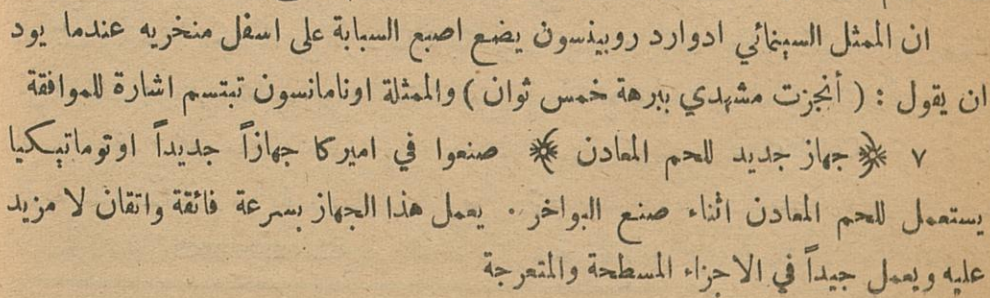 ان الممثل السينمائي ادوارد روبينسون يضع اصبع السبابة على اسفل منخريه عندما يود
ان يقول : ( أنجزت مشهدي ببرهة خمس ثوان ) والممثلة اونامانسون تبتسم اشارة للموافقة
٧ ﴿ جهاز جديد للحم المعادن ﴾ صنعوا في اميركا جهازاً جديداً اوتوماتيكيا
يستعمل للحم المعادن اثناء صنع البواخر . يعمل هذا الجهاز بسرعة فائقة واتقان لا مزيد
عليه ويعمل جيداً في الاجزاء المسطحة والمتعرجة